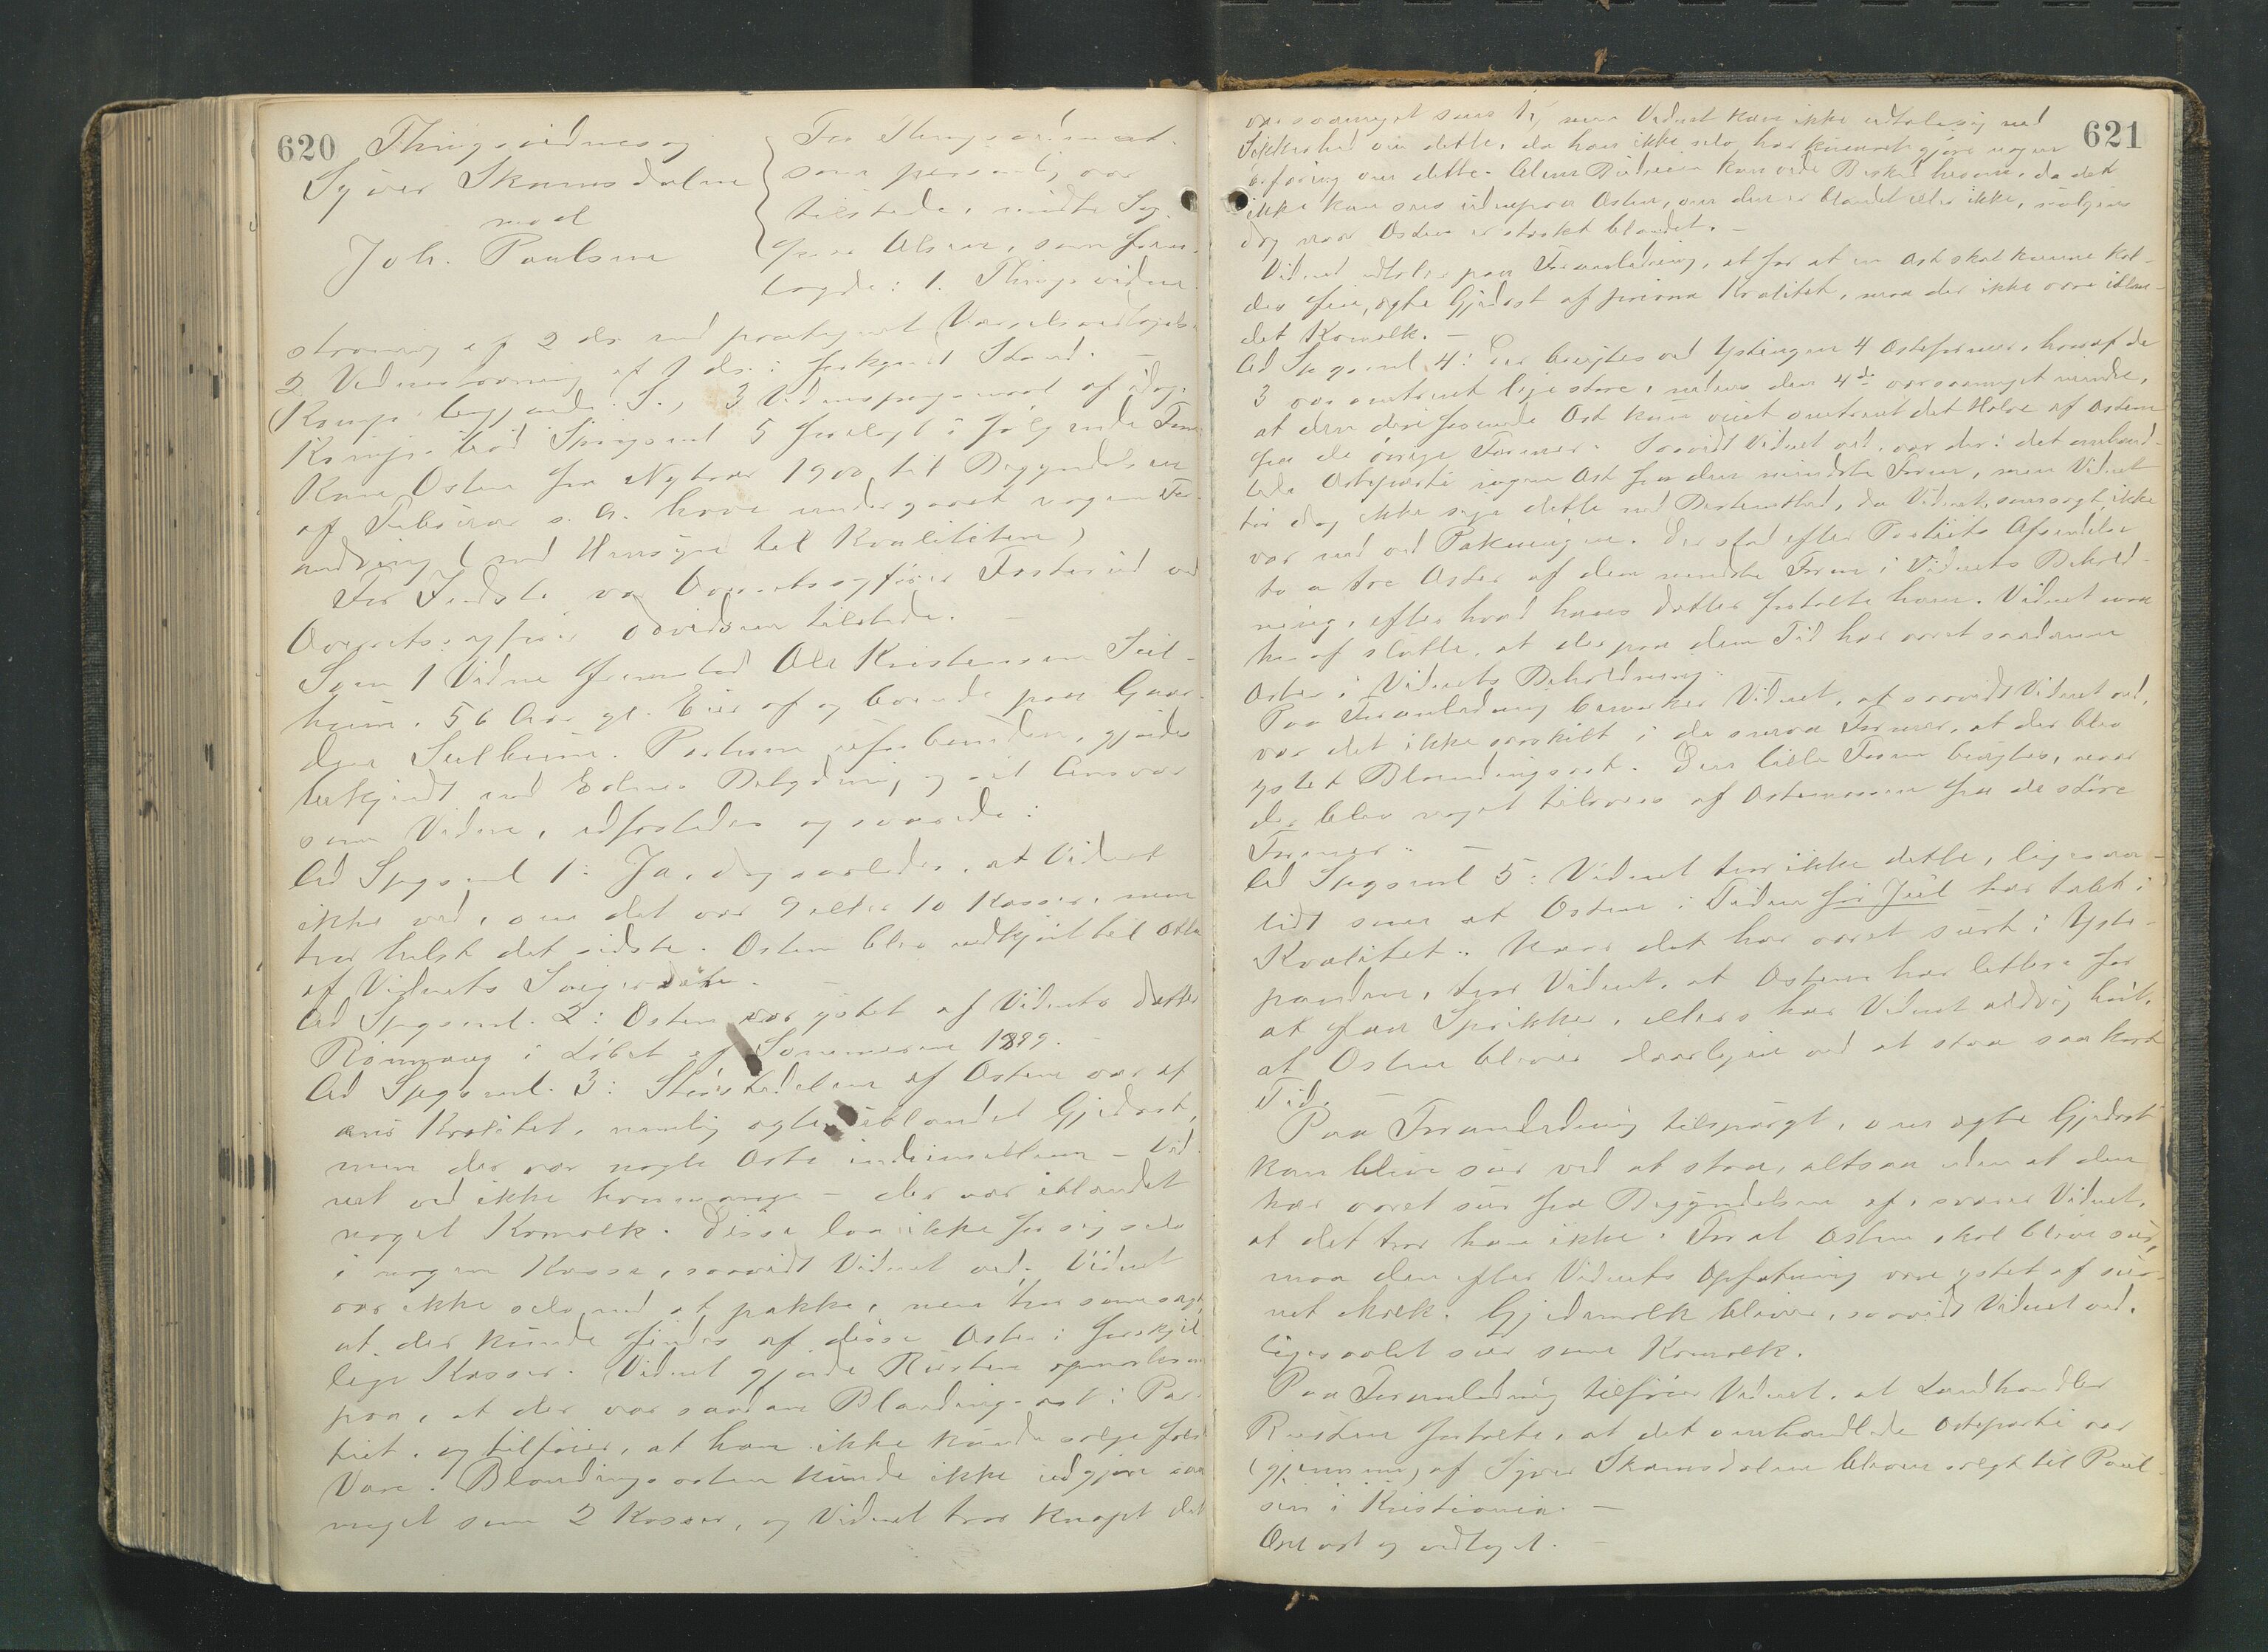 620
Thingsvidnesag
Syver Skamsdalen
mod
Joh. Paulsen
For Thingsvidnet
som personlig var
tilstede, mødte Sag-
fører Olsen, som frem-
lagde: 1. Thingsvidne
stævning af 2 ds. med paategnet Varselsvedtagelse
2 Vidnestævning af 7 ds. i forkyndt Stand. –
3 Vidnespørgsmaal af idag.
Spørgsml 5 forelagt i følgende Form
Kan Osten fra Nytaar 1900 til Begyndelsen
af Februar s. A. have undergaaet nogen For-
andring (med Hensyn til Kvaliteten)
For Indste var Overretssagfører
Overretssagfører Davidsen tilstede. –
Som 1 Vidne fremstod Ole Kristensen Sul-
heim, 56 Aar gl. Eier af og boende paa Gaar-
den Sulheim. Parterne uforbunden, gjordes
bekjendt med Edens Betydning og sit Ansvar
som Vidne, edfæstedes og svarede:
Ad Spgsml 1: Ja, dog saaledes, at Vidnet
ikke ved, om det var 9 eller 10 Kasser, men
tror helst det sidste. Osten blev nedkjørt til Otta
af Vidnets Svigersøn. –
Ad Spgsml. 2: Osten var ystet af Vidnets Datter
Rønnaug i Løbet af Sommeren 1899. –
Ad Spgsml. 3: Størstedelen af Osten var af
Kvalitet, nemlig ægte ublandet Gjedost,
men der var nogle Oste indimellem – Vid-
net ved ikke hvormange – der var iblandet
noget Komelk. Disse laa ikke for sig selv
i nogen Kasse, saavidt Vidnet ved. Vidnet
var ikke selv med at pakke, men tror som sagt,
at der kunde findes af disse Oster i forskjel-
lige Kasser. Vidnet gjorde Rusten opmerksom
paa, at der var saadan Blandingsost i Par-
tiet, og tilføier, at han ikke kunde sælge falsk
Vare. Blandingsosten kunde ikke udgjøre saa
meget som 2 Kasser, og Vidnet tror knapt det
621
var saameget som 1½ men Vidnet kan ikke udtale sig med
Sikkerhed om dette, da han ikke selv har kunnet gjøre nogen
erfaring om dette. Alene Budeien kan vide Besked herom, da det
ikke kan sees udenpaa Osten, om den er blandet eller ikke,
dog naar Osten er sterkt blandet. –
Vidnet udtaler paa Foranledning, at for at en Ost skal kunne kal-
des fin, ægte Gjedost af prima Kvalitet, maa der ikke være iblan-
det Komelk. –
Ad Spgsml 4: Der brugtes ved Ystingen 4 Osteformer, hvoraf de
3 var omtrent lige store, medens den 4de var saameget mindre,
at den deri formede Ost kun veiet omtrent det Halve af Ostene
fra de øvrige Former. Saavidt Vidnet ved, var der i det omhand-
lede Osteparti ingen Ost fra den mindste Form, men Vidnet
tør dog ikke sige dette med Bestemthed, da Vidnet, som sagt, ikke
var med ved Pakningen. Der stod efter Partiets Afsendelse
to a tre Oster af den mindste Form i Vidnets Behold-
ning, efter hvad hans Datter fortalte ham. Vidnet maa
heraf slutte, at der paa den Tid har været saadanne
Oster i Vidnets Beholdning.
Paa Foranledning bemerker Vidnet, at saavidt Vidnet ved,
var det ikke særskilt i de smaa Former, at der blev
ystet Blandingsost. Den lille Form brugtes, naar
der blev noget tilovers af Ostemassen fra de større
Former. –
Ad Spgsml 5: Vidnet tror ikke dette, ligesaa-
lidt som at Osten i Tiden før Jul har tabt i
Kvalitet. Naar det har været surt i Yste-
panden, tror Vidnet, at Osten har lettere for
at faa Sprikker, ellers har Vidnet aldrig hørt,
at Osten bliver daarligere ved at staa saa kort
Tid. –
Paa Foranledning tilspurgt, om ægte Gjedost
kan blive sur ved at staa, altsaa uden at den
har været sur fra Begyndelsen af, svarer Vidnet,
at det tror han ikke. For at Osten skal blive sur,
maa den efter Vidnets Opfatning være ystet af sur-
net Melk. Gjedemelk bliver, saavidt Vidnet ved,
ligesaalet sur som Komelk.
Paa Foranledning tilføier Vidnet, at Landhandler
Rusten fortalte, at det omhandlede Osteparti var
(gjennem) af Syver Skamsdalen bleven solgt til Paul-
sen i Kristiania. –
Oplæst og vedtaget. –